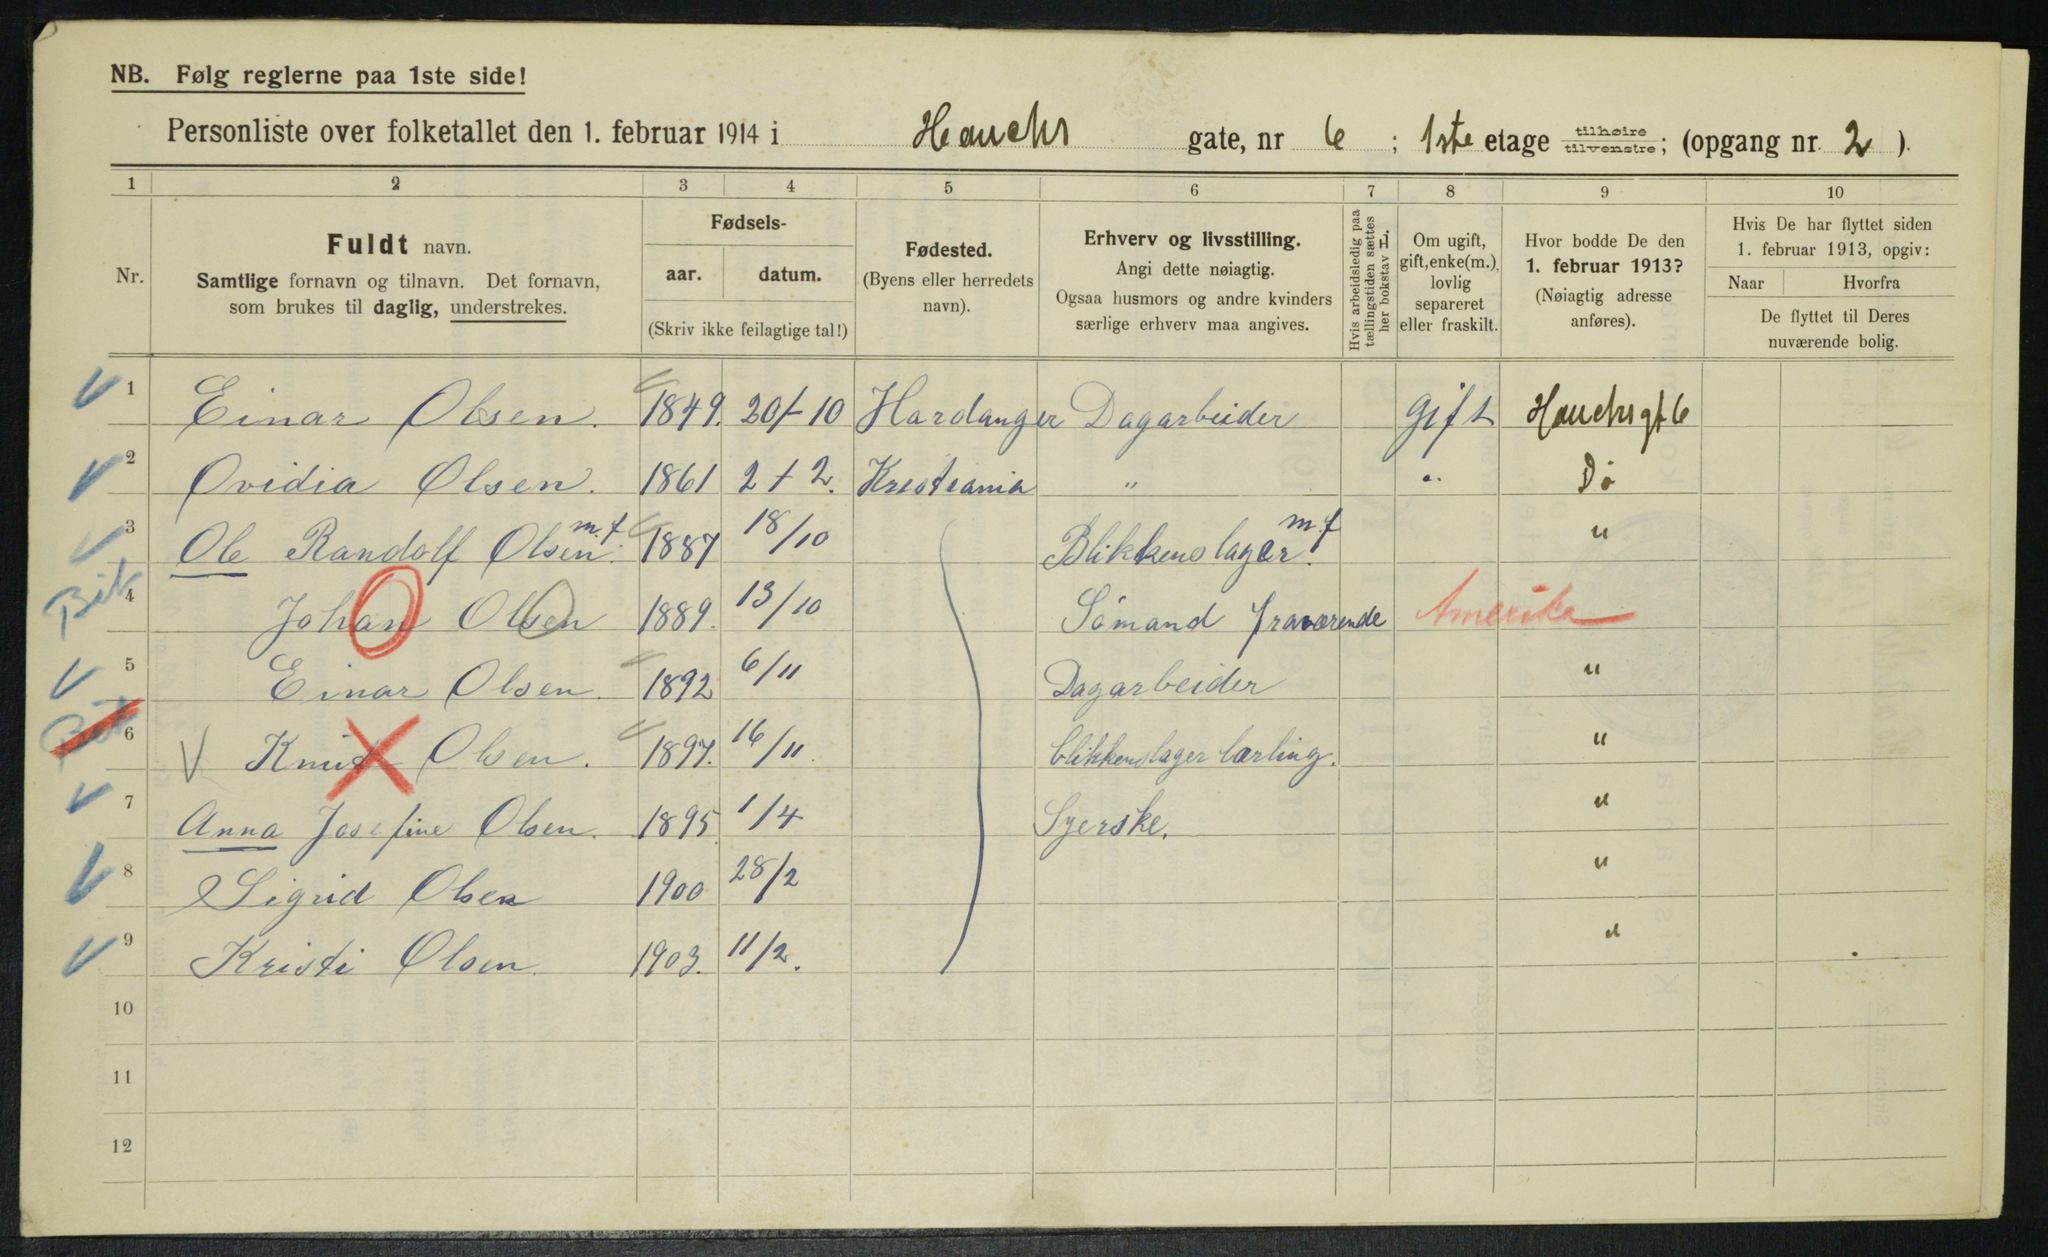 NB. Følg reglerne paa 1ste side!
Personliste over folketallet den 1. februar 1914 i Hauchs gate, nr 6 ; 1ste etage tilhøire tilvenstre; (opgang nr. 2 ).
1 2 3 4 5 6 7 8 9 10
Nr.
Fuldt navn.
Samtlige fornavn og tilnavn. Det fornavn,
som brukes til daglig, understrekes.
Fødsels-
aar. datum.
(Skriv ikke feilagtige tal!)
Fødested.
(Byens eller herredets
navn).
Erhverv og livsstilling.
Angi dette nøiagtig.
Ogsaa husmors og andre kvinders
særlige erhverv maa angives.
Hvis arbeidsledig paa
tællingstiden sættes
her bokstav L.
Om ugift,
gift, enke(m.),
lovlig
separeret
eller fraskilt.
Hvor bodde De den
1. februar 1913?
(Nøiagtig adresse
anføres).
Hvis De har flyttet siden
1. februar 1913, opgiv:
Naar Hvorfra
De flyttet til Deres
nuværende bolig.
1 Einar Olsen. 1849. 20/-10 Hardanger Dagarbeider gift Hauchsgt 6
2 Ovidia Olsen. 1861 2 + 2. Kristiania " " Do
3 Ole Randolf Olsen m.f. 1887 18/10 Blikkenslager. m.f "
4 Johan Olsen 1889. 13/10 Sömand fraværende Amerika
5 Einar Olsen. 1892 6/11 Dagarbeider "
6 V Knut Olsen. 1897. 16/11. blikkenslager lærling. "
7 Anna Josefine Olsen. 1895 1/4 Syerske. "
8 Sigrid Olsen 1900 28/2 "
9 Kristi Olsen. 1903. 11/2. "
10
11
12